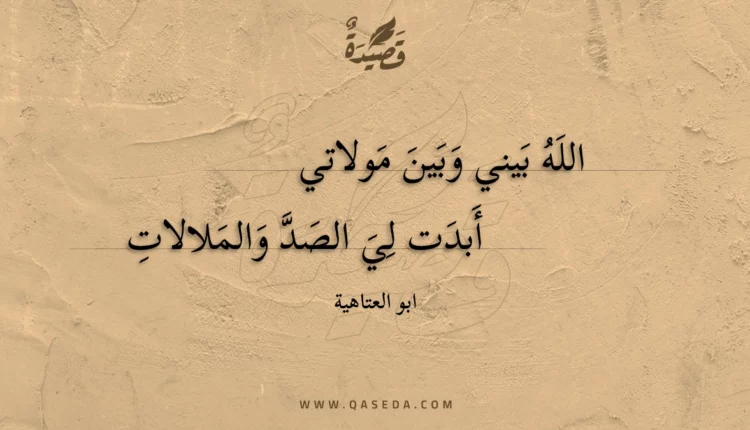 قَصِيدَةٌ
اللَهُ بَيني وَبَينَ مَولاتي
أَبدَت لِيَ الصَدَّ وَالمَلالاتِ
ابو العتاهية
WWW.QASEDA.COM